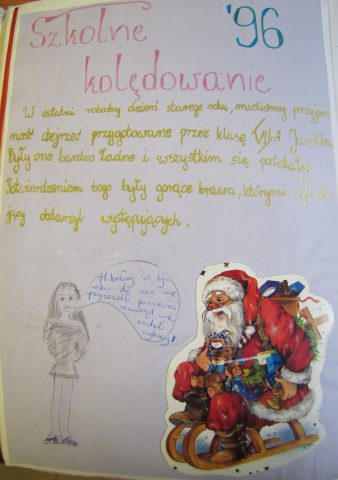 Szkolne '96
kolędowanie
W ostatni roboczy dzień starego roku, mieliśmy przyjem
ność obejrzeć przygotowane przez klasę VIIA Jasełka.
Były one bardzo ładne i wszystkim się podobały.
Potwierdzeniem tego były gorące brawa, którymi ogląda-
jący obdarzył występujących.
Mikołaj w tym
roku do was nie
przyszedł ponieważ
nie został